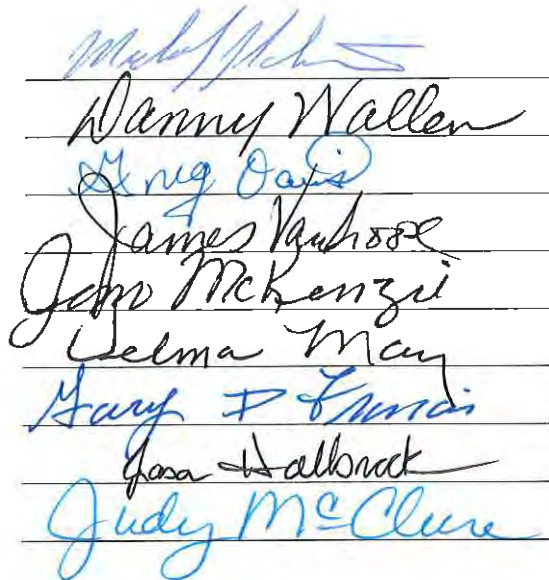 Danny Wallen
Greg Davis
James Vanhoose
McKenzie
Velma May
Gary D Francis
Holbrook
Judy McClure